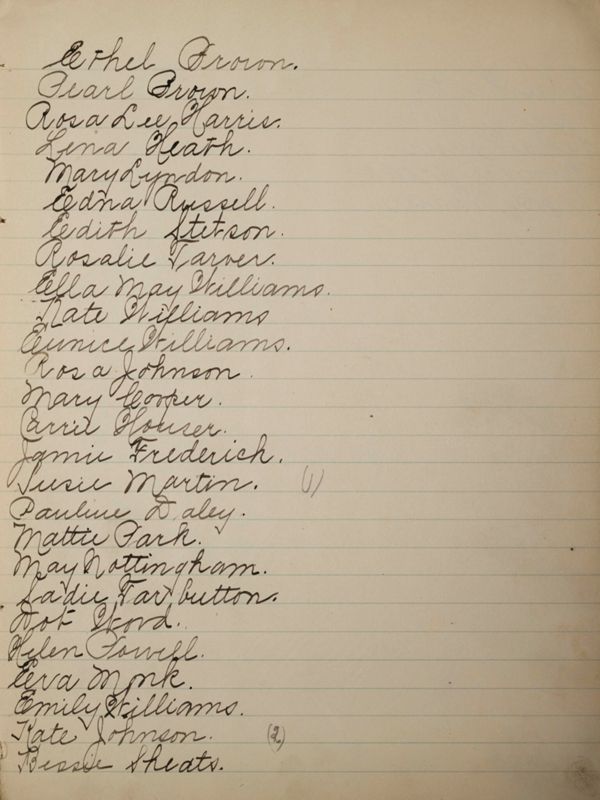 Ethel Brown.
Pearl Brown.
Rosa Lee Harris.
Lena Heath.
Mary Lyndon.
Edna Russell.
Edith Stetson.
Rosalie Tarver.
Ella May Williams.
Kate Williams
Eunice Williams.
Rosa Johnson.
Mary Cooper.
Carrie Houser.
Jamie Frederick.
Susie Martin. (1)
Pauline Daley.
Mattie Park.
May Nottingham.
Sadie Tarbutton.
Dot Word.
Helen Powell.
Eva Monk.
Emily Williams.
Kate Johnson. (2)
Bessie Sheats.